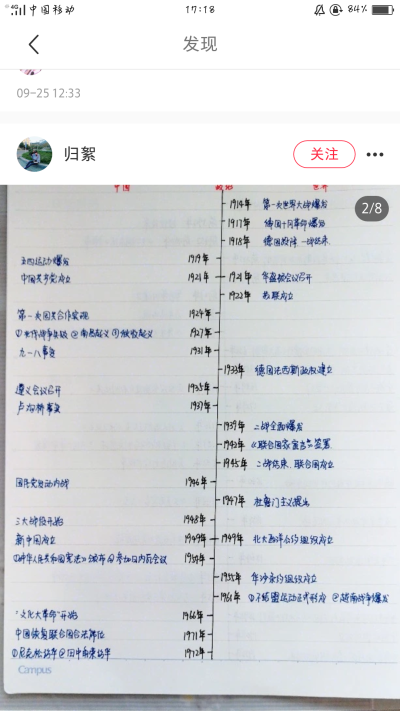 中国移动 17:18 84%
发现
09-25 12:33
归絮
关注
2/8
中国 政治 世界
1914年 第一次世界大战爆发
1917年 俄国十月革命爆发
1918年 德国投降 一战结束
五四运动爆发 1919年
中国共产党成立 1921年 1921年 华盛顿会议召开
1922年 苏联成立
第一次国共合作实现 1924年
②南昌起义 ③秋收起义 1927年
九一八事变 1931年
1933年 德国法西斯政权建立
遵义会议召开 1935年
卢沟桥事变 1937年
1939年 二战全面爆发
1942年 《联合国家宣言》签署
1945年 二战结束、联合国成立
国民党发动内战 1946年
1947年 杜鲁门主义提出
三大战役开始 1948年
新中国成立 1949年 1949年 北大西洋公约组织成立
①《中华人民共和国宪法》颁布②参加日内瓦会议 1954年
1955年 华沙条约组织成立
1961年 ①不结盟运动正式形成 ②越南战争爆发
"文化大革命"开始 1966年
中国恢复联合国合法席位 1971年
①尼克松访华②田中角荣访华 1972年
Campus